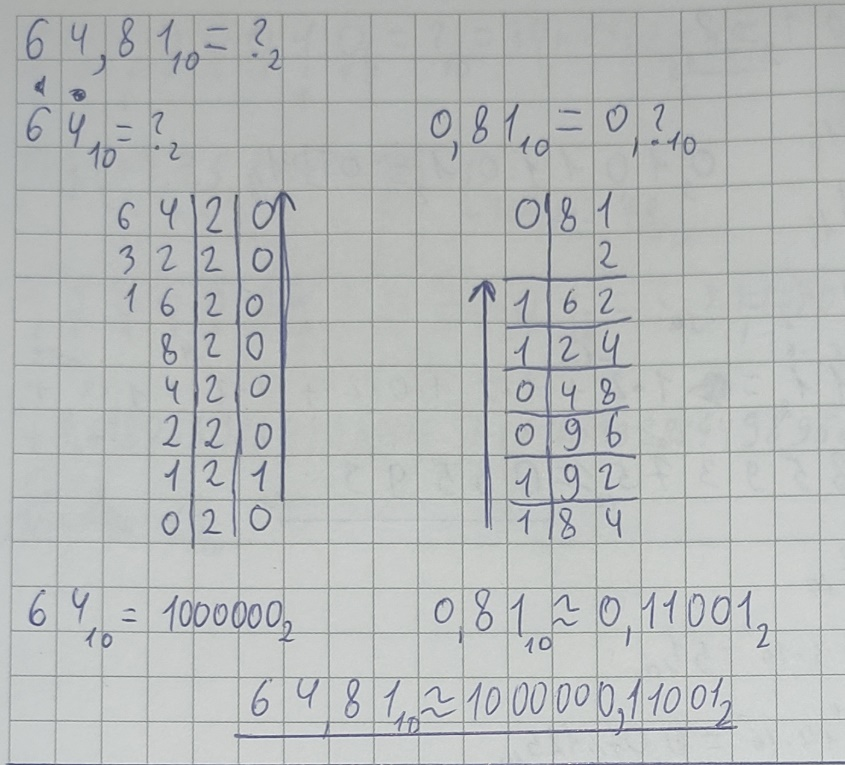 64,81₁₀ = ?₂
64₁₀ = ?₂
0,81₁₀ = 0,?₁₀
64|2|0
32|2|0
16|2|0
8|2|0
4|2|0
2|2|0
1|2|1
0|2|0
0|81
2
1|62
1|24
0|48
0|96
1|92
1|84
64₁₀ = 1000000₂
0,81₁₀ ≈ 0,11001₂
64,81₁₀ ≈ 1000000,11001₂